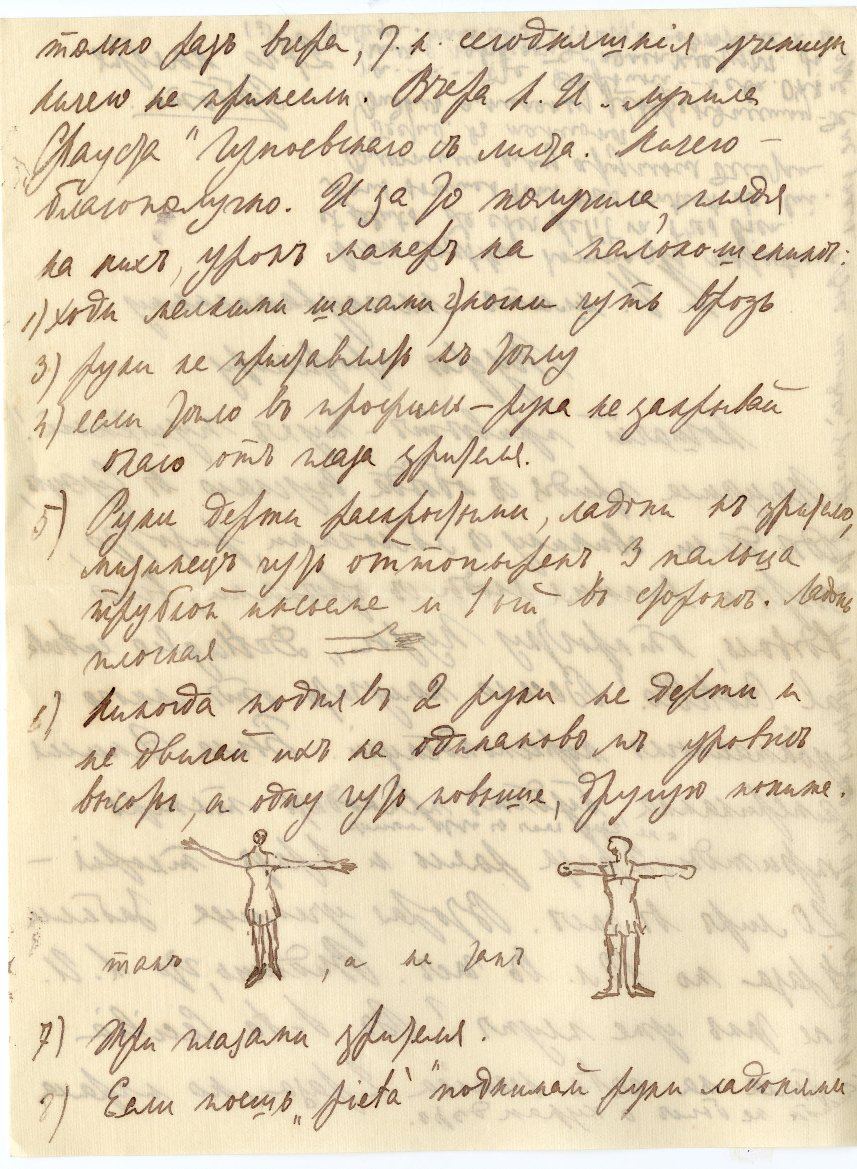 только разъ вчера, т.к. сегодняшнія ученицы
ничего не принесли. Вчера А.И. лупила
Фауста" с листа. Ничего —
благополучно. И за то получила, глядя
на нихъ, урокъ манеръ на
1) ходи мелкими шагами 2) носки чуть врозь
3) руки не приставлять къ тѣлу
4) если тѣло въ профиль – рука не закрывай
онаго отъ глаза зрителя.
5) Руки держи раскрытыми, ладони къ зрителю,
мизинецъ чуть оттопыренъ, 3 пальца
трубкой и 1ый въ сторонѣ. Ладонь
плоская
6) Никогда поднявъ 2 руки не держи и
не двигай ихъ на одинаковомъ уровнѣ
высоты, а одну чуть повыше, другую пониже.
такъ , а не такъ
7) Жри глазами зрителя.
8) Если поешь „pietà" поднимай руки ладонями